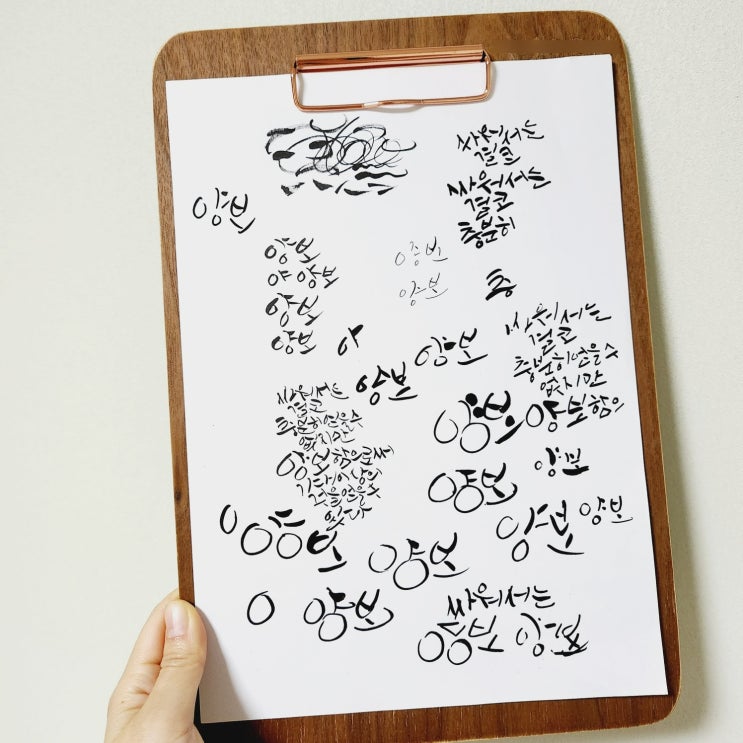 싸워서는
결코
싸워서는
결코
충분히
양보
양보
야 양보
양보
양보
아
양보
양보
충
양보
양보
싸워서는
결코
충분히 얻을 수
없지만
양보함으
싸워서는
결코
충분히 얻을 수
없지만
양보함으로써
기대 이상의
것을 얻을 수
있다
양보
양보
양보
양보
양보
양보
양보
양보
싸워서는
양보